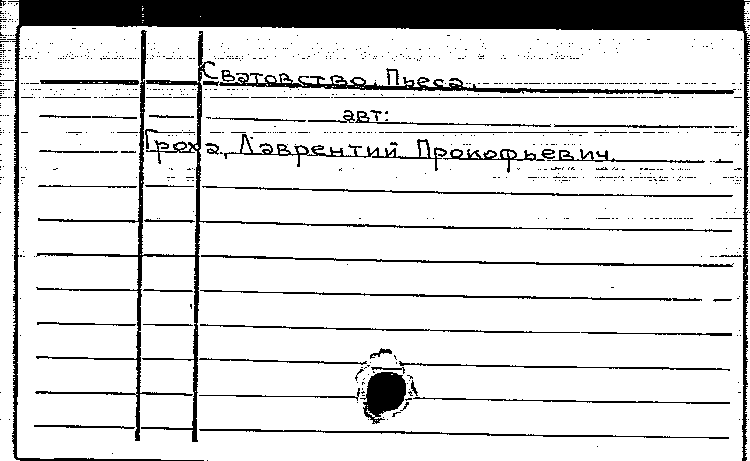 Сватовство. Пьеса.
авт:
Гроха, Лаврентий Прокофьевич.